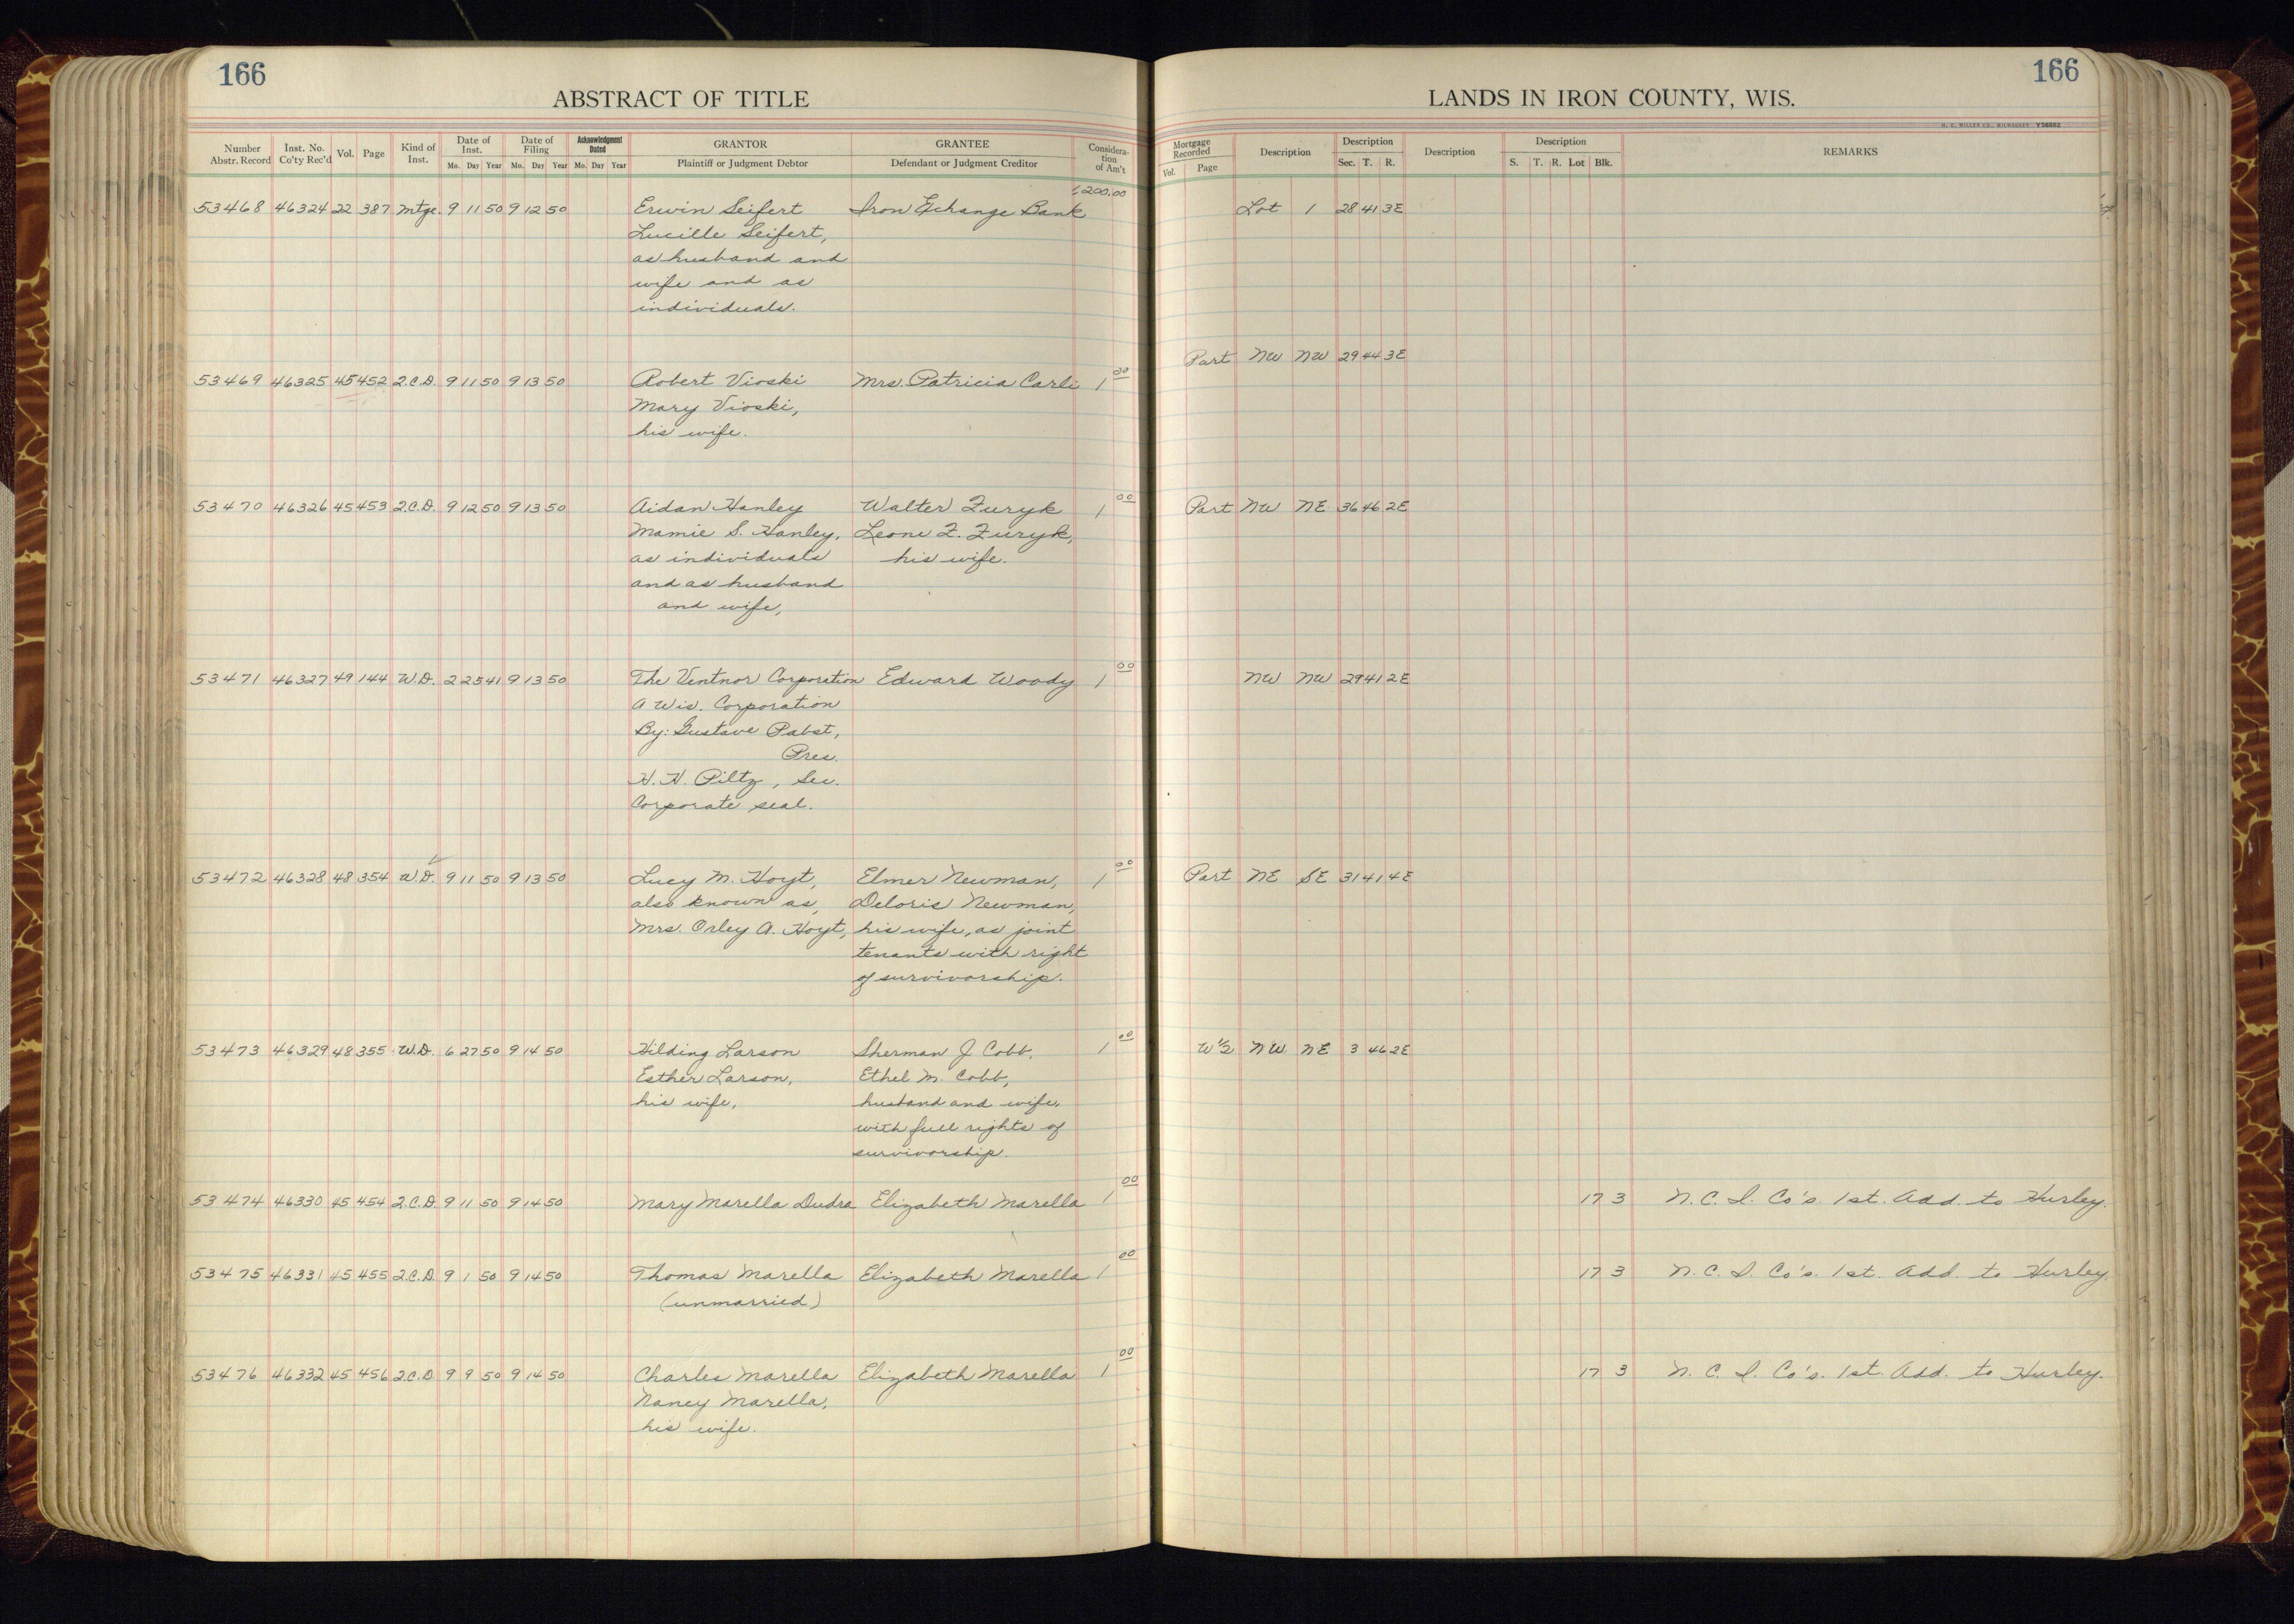 166
ABSTRACT OF TITLE
Number Abstr. Record
Inst. No. Co'ty Rec'd
Vol.
Page
Kind of Inst.
Date of Inst.
Mo. Day Year
Date of Filing
Mo. Day Year
Acknowledgment Dated
Mo. Day Year
GRANTOR
Plaintiff or Judgment Debtor
GRANTEE
Defendant or Judgment Creditor
Considera-
tion
of Am't
166
LANDS IN IRON COUNTY, WIS.
H. C. MILLER CO., MILWAUKEE Y56882
Mortgage Recorded
Vol. Page
Description
Description
Sec. T. R.
Description
Description
S. T. R. Lot Blk.
REMARKS
200.00
53468 46324 22 387 Mtge. 9 11 50 9 12 50 Erwin Seifert Iron Exchange Bank Lot 1 28 41 3E
Lucille Seifert,
as husband and
wife and as
individuals.
Part NW NW 29 44 3E
53469 46325 45 452 2.C.D. 9 11 50 9 13 50 Robert Vioski Mrs. Patricia Carli 1 00
Mary Vioski,
his wife.
53470 46326 45 453 2.C.D. 9 12 50 9 13 50 Aidan Hanley Walter Zuryk 1 00 Part NW NE 36 46 2E
Mamie S. Hanley, Leone Z. Zuryk,
as individuals his wife.
and as husband
and wife,
53471 46327 49 144 W.D. 2 25 41 9 13 50 The Ventnor Corporation Edward Woody 1 00 NW NW 29 41 2E
A Wis. Corporation
By: Gustave Pabst,
Pres.
H. H. Piltz, Sec.
Corporate seal.
53472 46328 48 354 W.D. 9 11 50 9 13 50 Lucy M. Hoyt, Elmer Newman, 1 00 Part NE SE 31 41 4E
also known as, Deloris Newman,
Mrs. Orley A. Hoyt, his wife, as joint
tenants with right
of survivorship.
53473 46329 48 355 W.D. 6 27 50 9 14 50 Hilding Larson Sherman J Cobb, 1 00 W½ NW NE 3 46 2E
Esther Larson, Ethel M. Cobb,
his wife, husband and wife,
with full rights of
survivorship.
53474 46330 45 454 2.C.D. 9 11 50 9 14 50 Mary Marella Dudra Elizabeth Marella 1 00 17 3 N. C. I. Co's. 1st. Add. to Hurley.
53475 46331 45 455 2.C.D. 9 1 50 9 14 50 Thomas Marella Elizabeth Marella 1 00 17 3 N. C. I. Co's. 1st. Add. to Hurley.
(unmarried)
53476 46332 45 456 2.C.D. 9 9 50 9 14 50 Charles Marella Elizabeth Marella 1 00 17 3 N. C. I. Co's. 1st. Add. to Hurley.
Nancy Marella,
his wife.